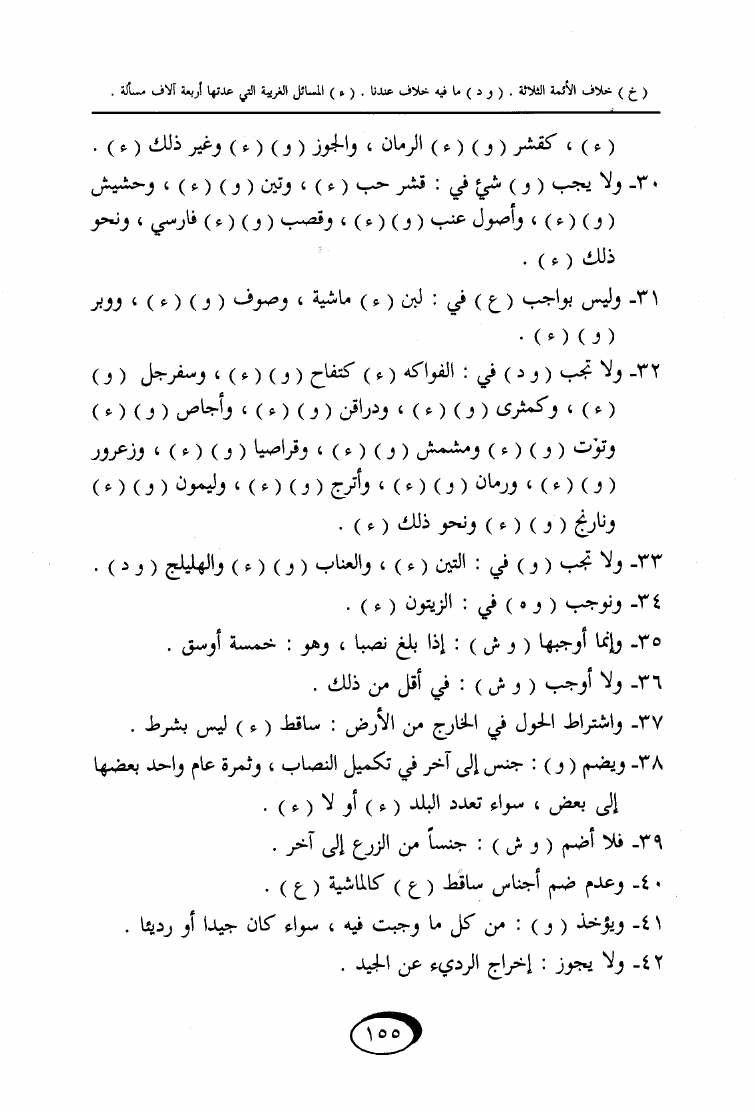 ( خ ) خلاف الأئمة الثلاثة . ( و د ) ما فيه خلاف عندنا . ( ء ) المسائل الغريبة التي عدتها أربعة آلاف مسألة .
( ء ) ، كقشر ( و ) ( ء ) الرمان ، والجوز ( و ) ( ء ) وغير ذلك ( ء ) .
٣٠- ولا يجب ( و ) شئ في : قشر حب ( ء ) ، وتبن ( و ) ( ء ) ، وحشيش
( و ) ( ء ) ، وأصول عنب ( و ) ( ء ) ، وقصب ( و ) ( ء ) فارسي ، ونحو
ذلك ( ء ) .
٣١- وليس بواجب ( ع ) في : لبن ( ء ) ماشية ، وصوف ( و ) ( ء ) ، ووبر
( و ) ( ء ) .
٣٢- ولا تجب ( و د ) في : الفواكه ( ء ) كتفاح ( و ) ( ء ) ، وسفرجل ( و )
( ء ) ، وكمثرى ( و ) ( ء ) ، ودراقن ( و ) ( ء ) ، وأجاص ( و ) ( ء )
وتوّت ( و ) ( ء ) ومشمش ( و ) ( ء ) ، وقراصيا ( و ) ( ء ) ، وزعرور
( و ) ( ء ) ، ورمان ( و ) ( ء ) ، وأترج ( و ) ( ء ) ، وليمون ( و ) ( ء )
ونارنج ( و ) ( ء ) ونحو ذلك ( ء ) .
٣٣- ولا تجب ( و ) في : التين ( ء ) ، والعناب ( و ) ( ء ) والهليلج ( و د ) .
٣٤- ونوجب ( و ه ) في : الزيتون ( ء ) .
٣٥- وإنما أوجبها ( و ش ) : إذا بلغ نصبا ، وهو : خمسة أوسق .
٣٦- ولا أوجب ( و ش ) : في أقل من ذلك .
٣٧- واشتراط الحول في الخارج من الأرض : ساقط ( ء ) ليس بشرط .
٣٨- ويضم ( و ) : جنس إلى آخر في تكميل النصاب ، وثمرة عام واحد بعضها
إلى بعض ، سواء تعدد البلد ( ء ) أو لا ( ء ) .
٣٩- فلا أضم ( و ش ) : جنساً من الزرع إلى آخر .
٤٠- وعدم ضم أجناس ساقط ( ع ) كالماشية ( ع ) .
٤١- ويؤخذ ( و ) : من كل ما وجبت فيه ، سواء كان جيدا أو رديئا .
٤٢- ولا يجوز : إخراج الرديء عن الجيد .
١٥٥